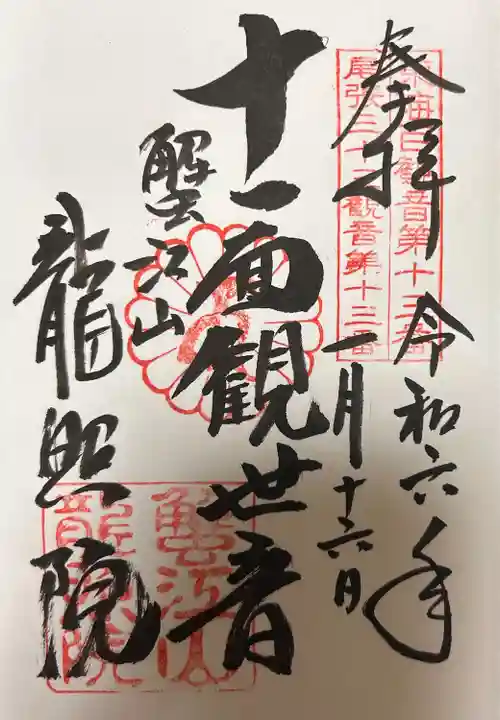 奉拝
令和六年
一月十六日
東海白寿観音第十三番
尾張三十三観音第十三番
十一面観世音
蟹江山
龍照院
蟹江山
龍照院